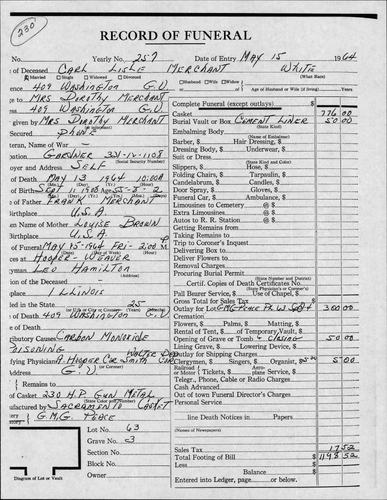 280
RECORD OF FUNERAL
No. Yearly No. 257 Date of Entry MAY 15 1964
of Deceased CARL LISLE MERCHANT WHITE
Married Single Widowed Divorced (What Race)
ence 409 WASHINGTON G.V. Husband Wife Widow of Age of Husband or Wife (if living) Years
ge to MRS DOROTHY MERCHANT
ess 409 WASHINGTON G.V. Complete Funeral (except outlays) $
given by MRS DOROTHY MERCHANT Casket 776 00
Secured PHONE Burial Vault or Box CEMENT LINER 50 00
(State Kind)
teran, Name of War Embalming Body
(Name of Embalmer)
pation GARDNER 331-14-1108 Barber, $ Hair Dressing, $
(Social Security Number) Dressing Body, $ Underwear, $
oyer and Address SELF Suit or Dress
of Death MAY 13 1964 10:00A (State Kind and Color)
Slippers, $ Hose, $
of Birth SEPT 11 1908 Age 55-8-2 Folding Chairs, $ Tarpaulin, $
of Father FRANK MERCHANT Candelabrum, $ Candles, $
Birthplace U.S.A. Door Spray, $ Gloves, $
en Name of Mother LOUISE BROWN Funeral Car, $ Ambulance, $
Birthplace U.S.A. Limousines to Cemetery @ $
Extra Limousines @ $
of Funeral MAY 15-1964 FRI- 2:00 P.M. Autos to R. R. Station @ $
ces at HOOPER-WEAVER Getting Remains from
gyman LEO HAMILTON Taking Remains to
ion of the Deceased Trip to Coroner's Inquest
place ILLINOIS Delivering Box to
Deliver Flowers to
led in the State 25 Removal Charges
Procuring Burial Permit
(State Number and District)
of Death 409 WASHINGTON G.V. Certif. Copies of Death Certificates No.
of Death Pall Bearer Service, $ Use of Chapel, $
Gross Total for Sales Tax $
ibutory Causes CARBON MONOXIDE Outlay for Lot 300 00
POISONING Flowers, $ Palms, $ Matting, $
Rental of Tent, $ of Temporary Vault, $
ifying Physician Opening of Grave or Tomb & CLOSING 50 00
Address G.V. (or Coroner) Lining Grave, $ Lowering Device, $
Outlay for Shipping Charges
Remains to Clergymen, $ Singers, $ Organist, 5.00 5 00
Railroad or Motor Tickets, $ Aeroplane Service, $
of Casket 230 H.P. GUN METAL Telegr., Phone, Cable or Radio Charges
(State Color and Number) Cash Advanced
ufactured by SACRAMENTO CASKET Out of town Funeral Director's Charges
ery G.M.G. PEACE Personal Service
Lot No. 63 line Death Notices in Papers
(Names of Newspapers)
Grave No. 3
Section No. Sales Tax 17 52
Total Footing of Bill $ 1198 52
Block No. Less $
Balance $
Owner Entered into Ledger, page or below.
Diagram of Lot or Vault